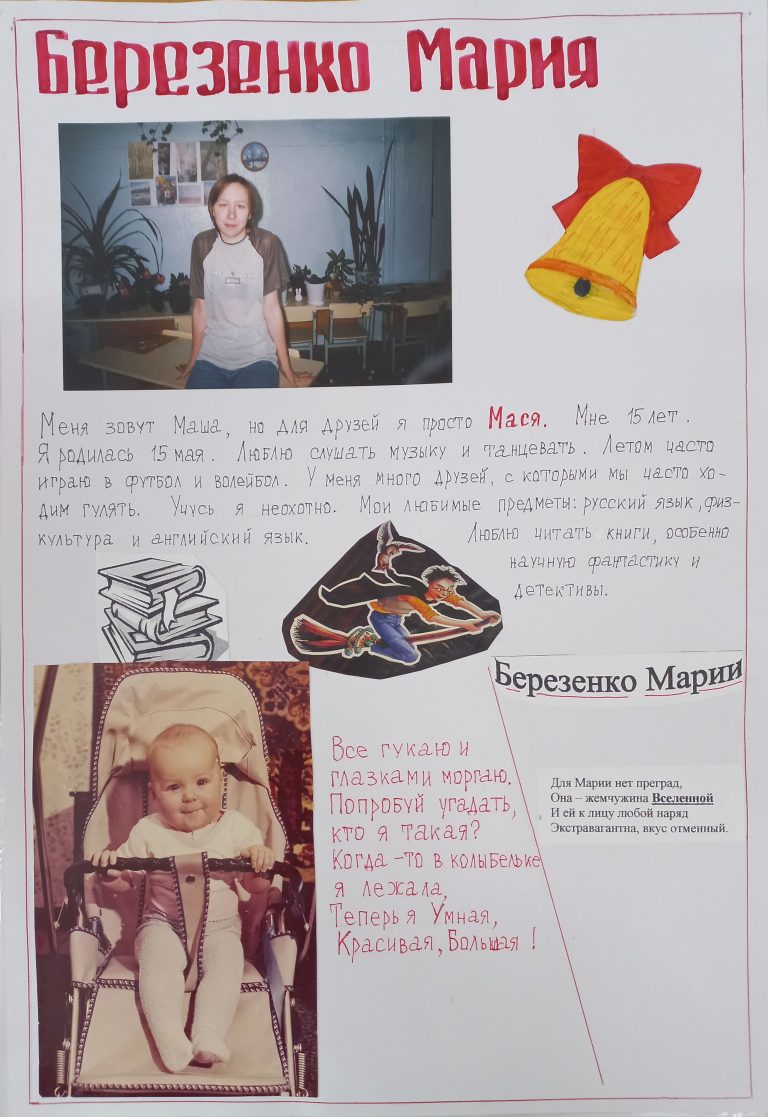 Березенко Мария
Меня зовут Маша, но для друзей я просто Мася. Мне 15 лет.
Я родилась 15 мая. Люблю слушать музыку и танцевать. Летом часто
играю в футбол и волейбол. У меня много друзей, с которыми мы часто хо-
дим гулять. Учусь я неохотно. Мои любимые предметы: русский язык, физ-
культура и английский язык.
Люблю читать книги, особенно
научную фантастику и
детективы.
Березенко Марии
Все гукаю и
глазками моргаю.
Попробуй угадать,
кто я такая?
Когда-то в колыбельке
я лежала,
Теперь я Умная,
Красивая, Большая!
Для Марии нет преград,
Она – жемчужина Вселенной
И ей к лицу любой наряд
Экстравагантна, вкус отменный.